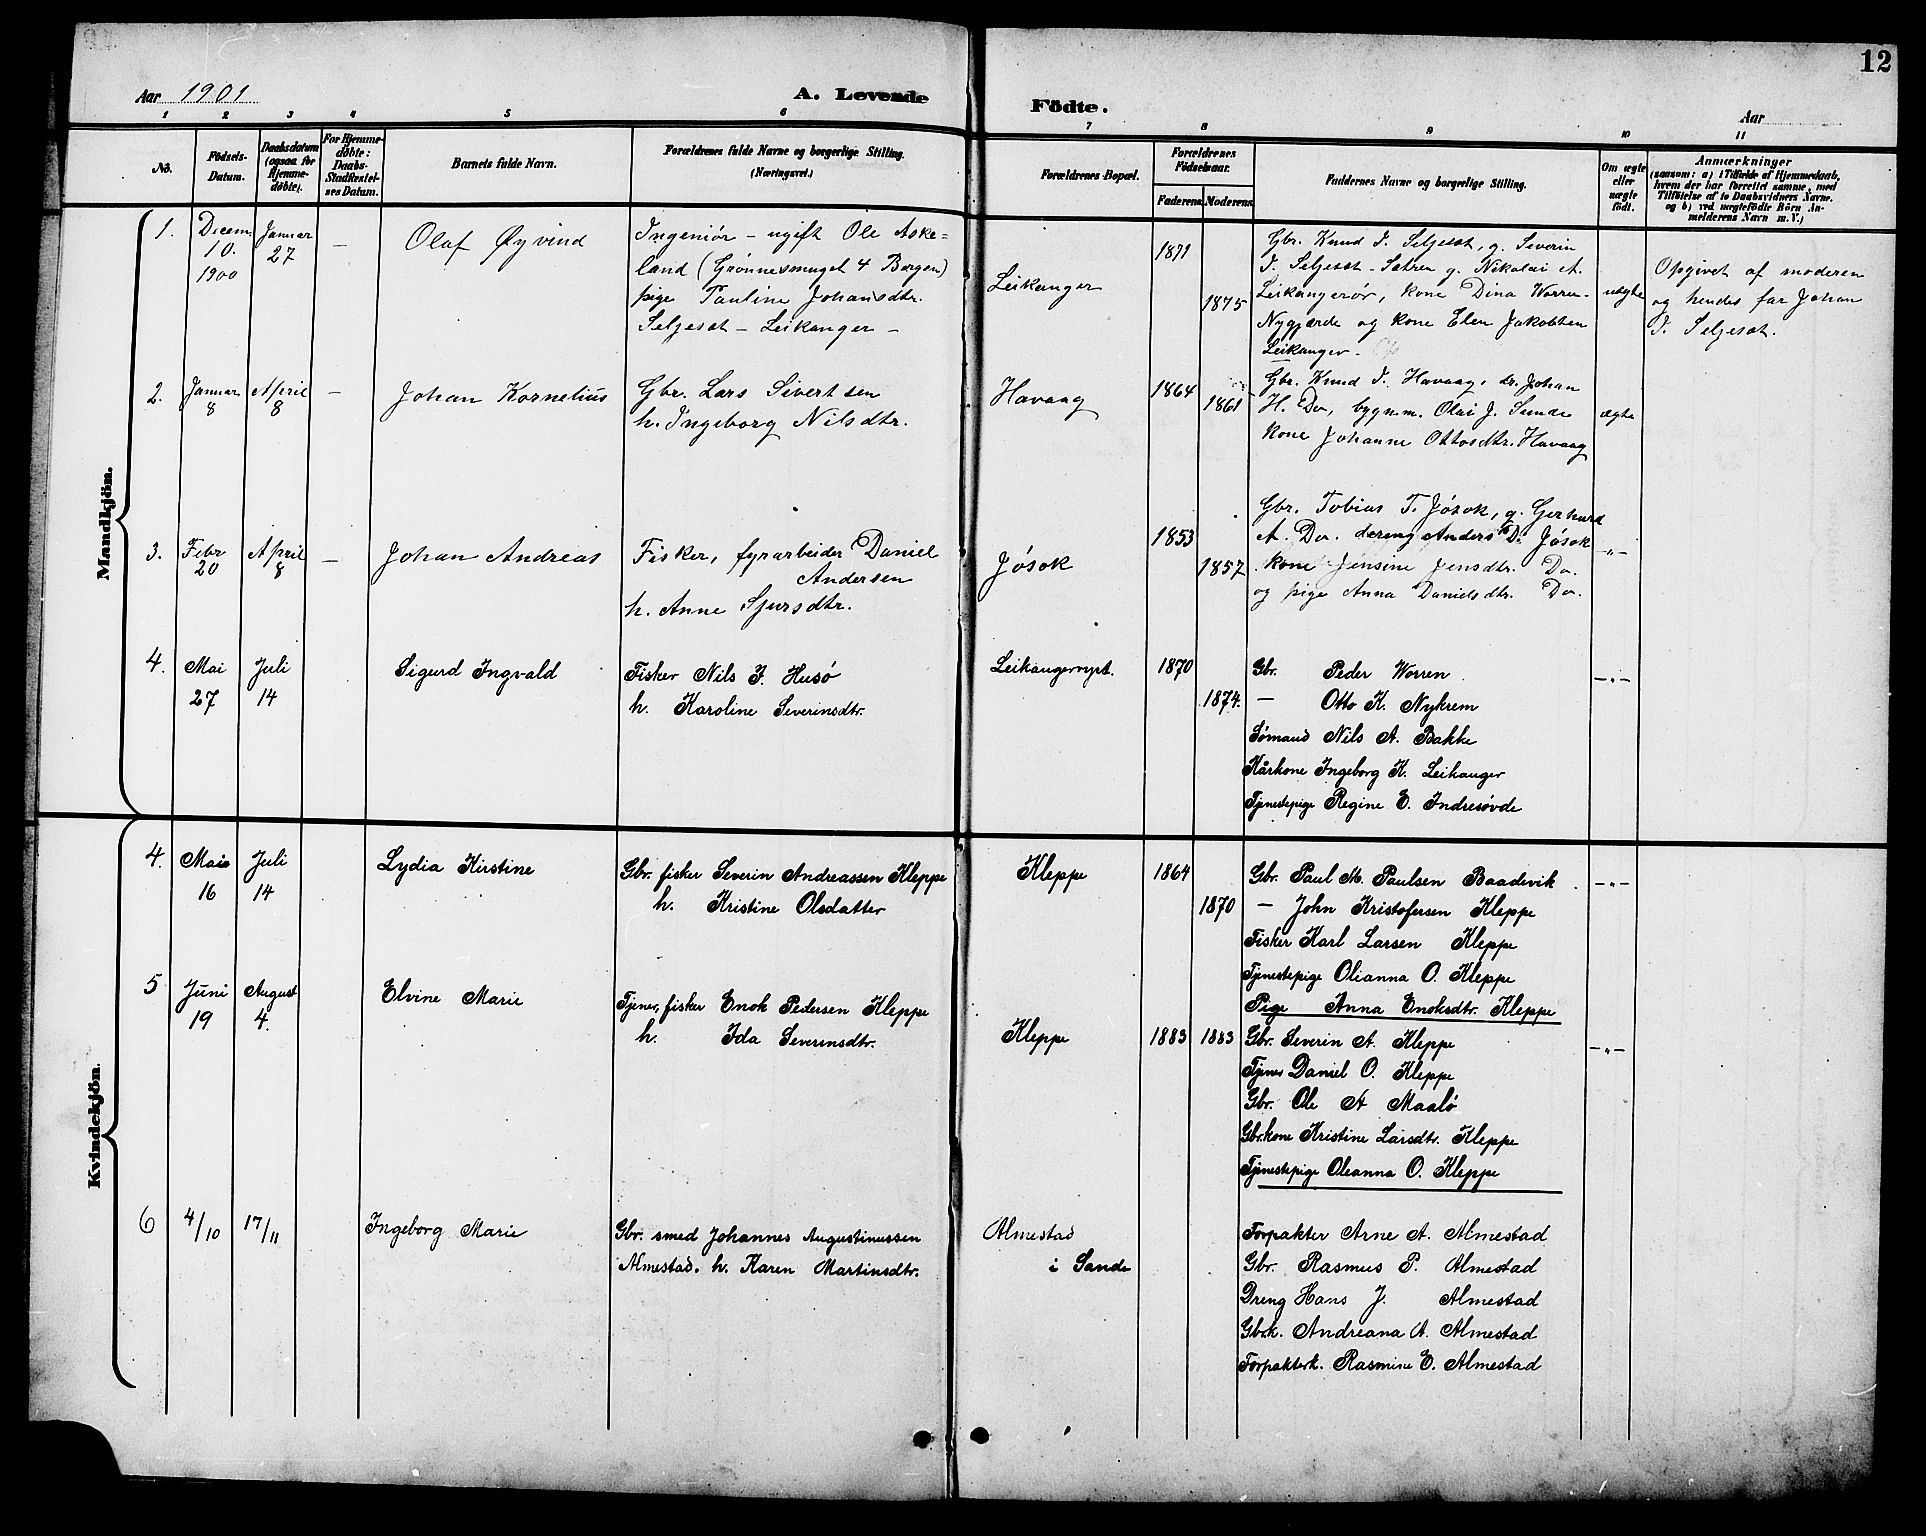 12
Aar 1901
A. Levende
Födte.
Aar
1 2 3 4 5 6 7 8 9 10 11
No.
Födsels-
Datum.
Daabsdatum
(ogsaa for
Hjemme-
döbte).
For Hjemme-
døbte:
Daabs-
Stadfæstel-
ses Datum.
Barnets fulde Navn.
Forældrenes fulde Navne og borgerlige Stilling.
(Næringsvei.)
Forældrenes Bopæl.
Forældrenes
Födselsaar.
Faderens.
Moderens.
Faddernes Navne og borgerlige Stilling.
Om ægte
eller
uægte
födt.
Anmærkninger
(saasom: a) i Tilfælde af Hjemmedaab,
hvem der har forrettet samme, med
Tilföielse af to Daabsvidners Navne.
og b) ved uægtefödte Börn An-
melderens Navn m. V.)
Mandkjön.
1.
Decem.
10.
1900
Januar
27
—
Olaf Øyvind
Ingeniør – ugift Ole Aske=
land (Grønnesmuget 4 Bergen)
pige Pauline Johansdtr.
Seljeset – Leikanger –
Leikanger
1871
1875
Gbr. Knud J. Seljeset, g. Severin
J. Seljeset – Sætren g. Nikolai A.
Leikangerør, kone Dina Worren-
Nygjærde og kone Elen Jakobsen
Leikanger –
uægte
Opgivet af moderen
og hendes far Johan
J. Seljeset.
2.
Januar
8
April
8
—
Johan Kornelius
Gbr. Lars Sivertsen
h. Ingeborg Nilsdtr.
Havaag
1864
1861
Gbr. Knud J. Havaag, dr. Johan
H. Do, bygn.m. Olai J. Sunde
kone Johanne Ottosdtr. Havaag
ægte
3.
Febr
20
April
8
—
Johan Andreas
Fisker, fyrarbeider Daniel
Andersen
h. Anne Sjursdtr.
Jøsok
1853
1857
Gbr. Tobias T. Jøsok, g. Gerhard
A. Do. dreng Anders D. Jøsok
kone Jensine Jensdtr. Do.
og pige Anna Danielsdtr. Do.
–„–
4.
Mai
27
Juli
14
Sigurd Ingvald
Fisker Nils J. Husø
h. Karoline Severinsdtr.
Leikangernypt.
1870
1874.
Gbr. Peder Worren
— Otto K. Nykrem
Sømand Nils A. Bakke
Kårkone Ingeborg K. Leikanger
Tjenestepige Regine E. Indresøvde
–„–
Kvindekjön.
4.
Mai
16
Juli
14
Lydia Kirstine
Gbr. fisker Severin Andreassen Kleppe
h. Kristine Olsdatter
Kleppe
1864
1870
Gbr. Paul M. Paulsen Baadsvik
– John Kristofersen Kleppe
Fisker Karl Larsen Kleppe
Tjenestepige Olianna O. Kleppe
Pige Anna Enoksdtr. Kleppe
–„–
5
Juni
19
August
4.
Elvine Marie
Tjener, fisker Enok Pedersen Kleppe
h. Ida Severinsdtr.
Kleppe
1883
1883
Gbr. Severin A. Kleppe
Tjener Daniel O. Kleppe
Gbr. Ole A Maalø
Gbr.kone Kristine Larsdtr. Kleppe
Tjenestepige Oleanna O. Kleppe
–„–
6
4/10
17/11
Ingeborg Marie
Gbr. smed Johannes Augustinussen
Almestad. h. Karen Martinsdtr.
Almestad
i Sande
Forpakter Arne A. Almestad
Gbr. Rasmus P. Almestad
Dreng Hans J. Almestad
Gbrk. Andreana A. Almestad
Forpakterk. Rasmine E. Almestad